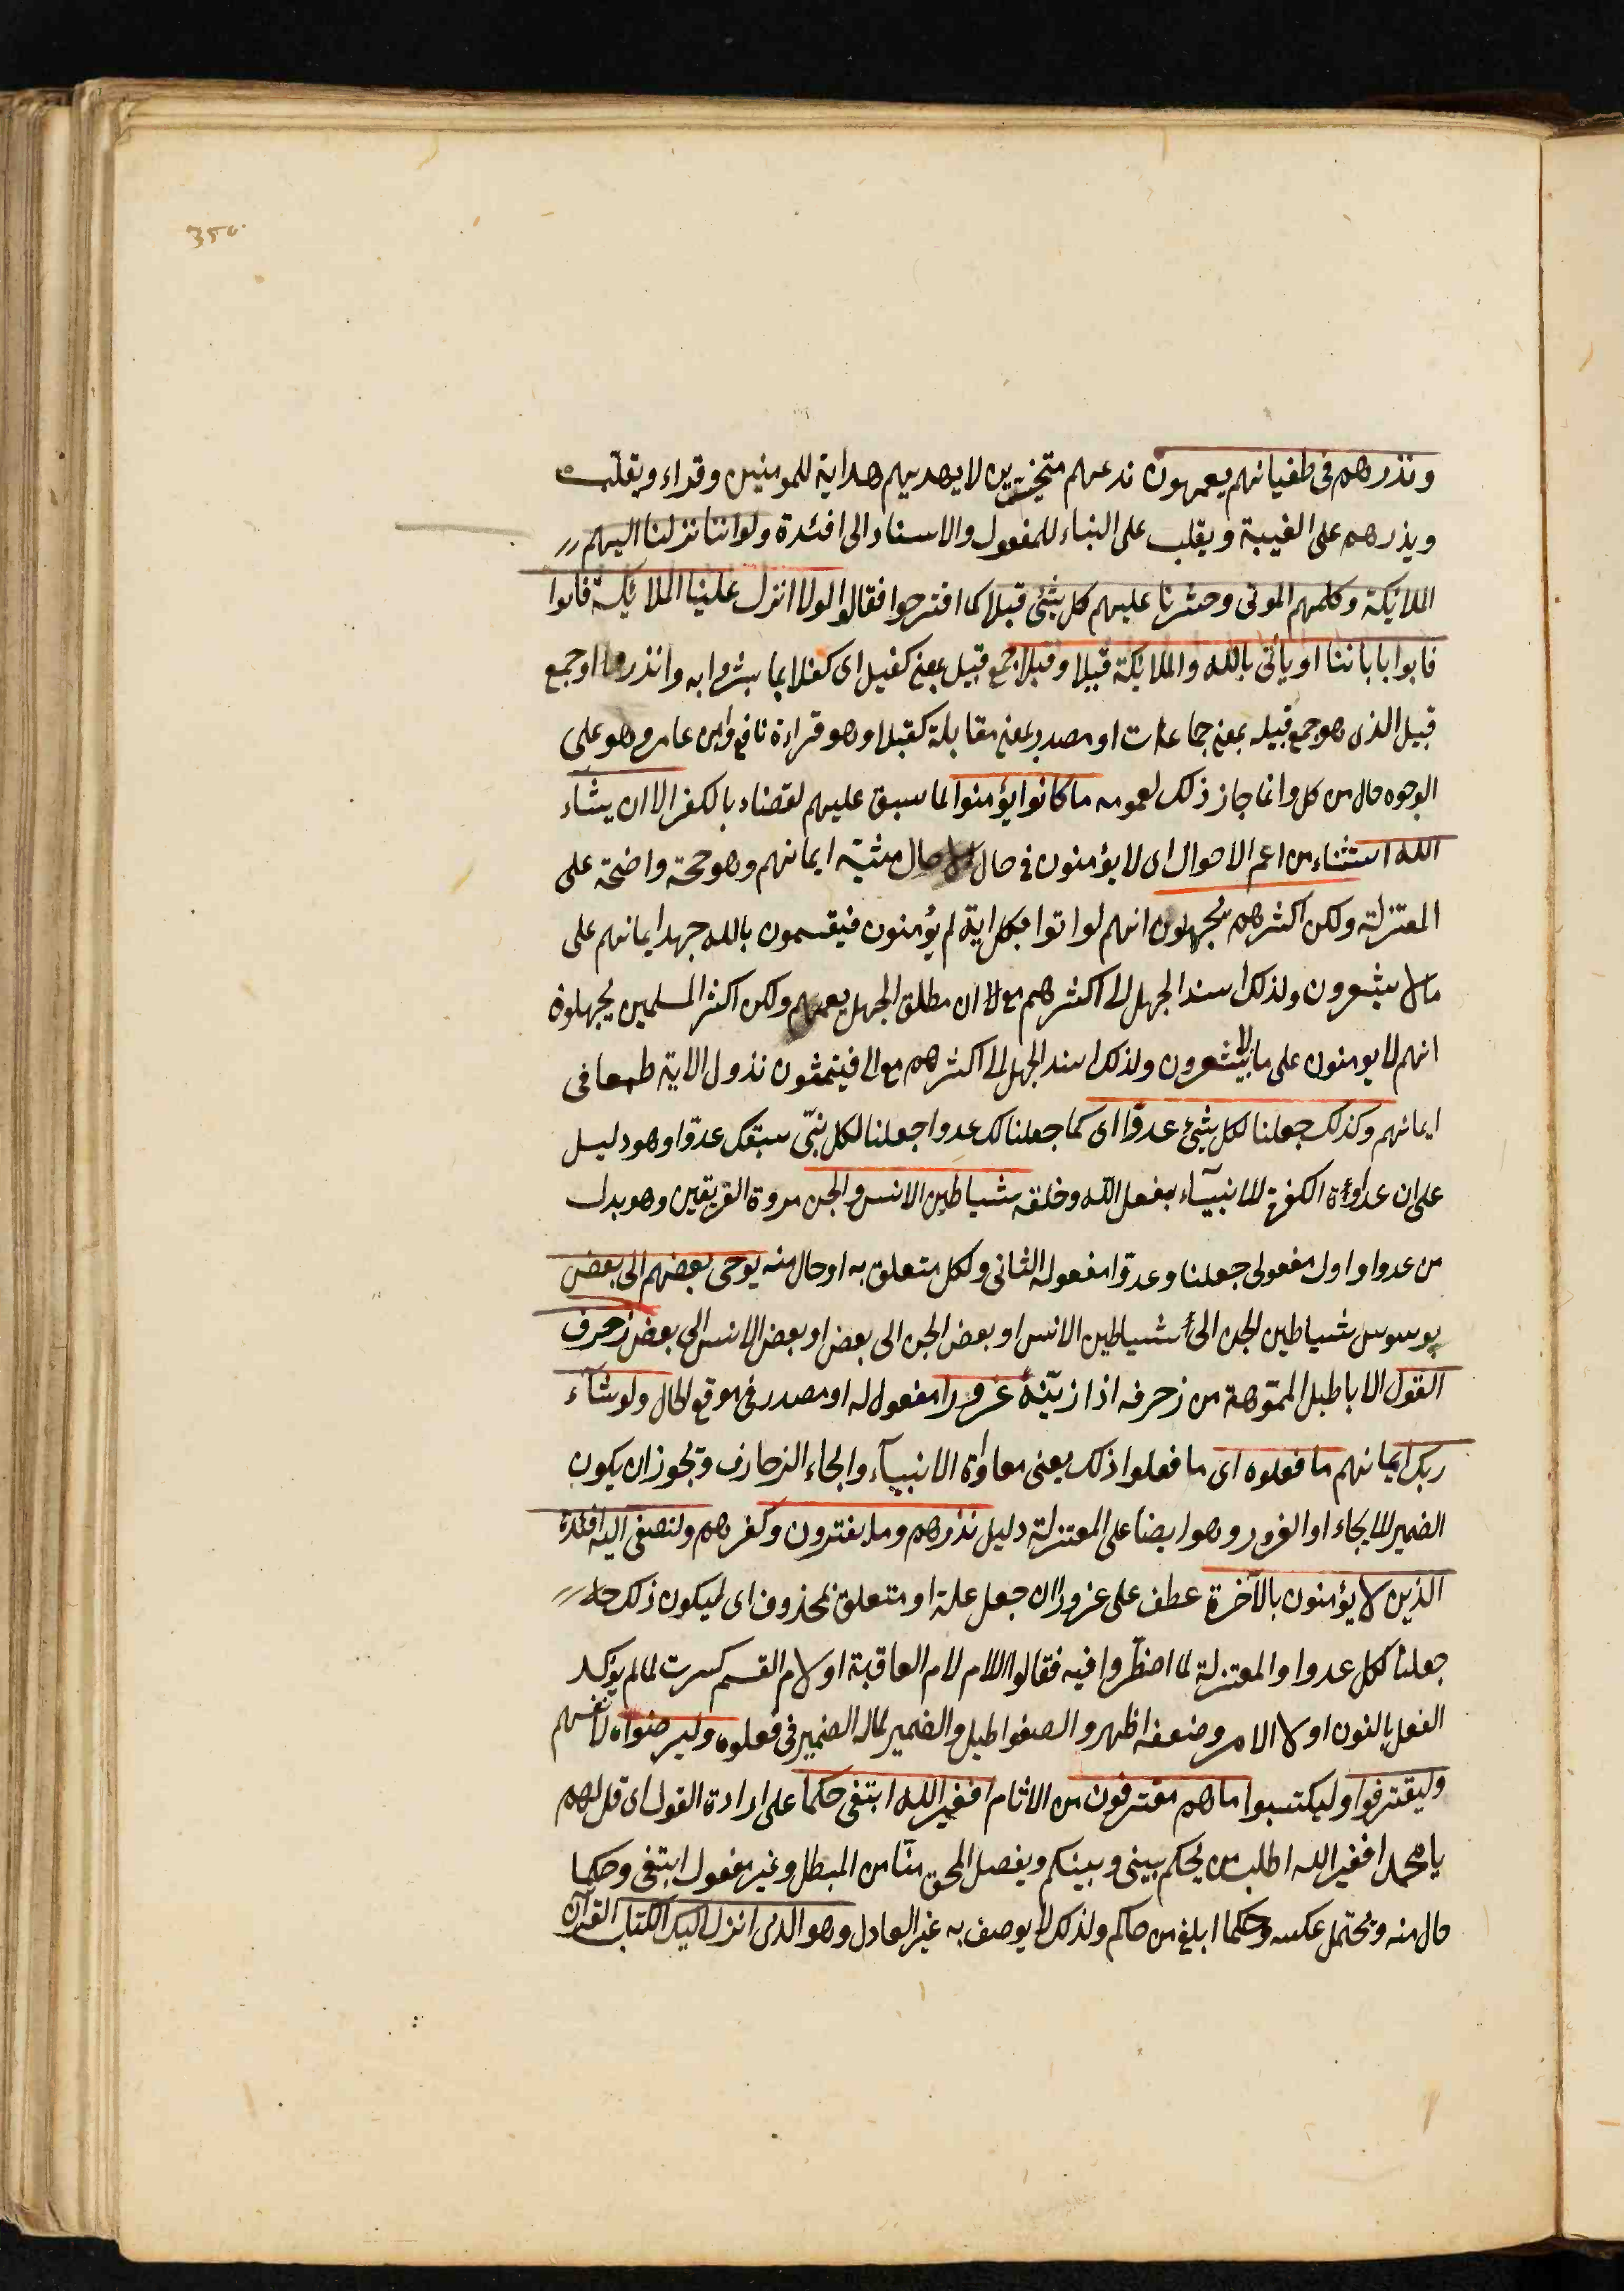 350
ونذرهم فى طغيانهم يعمهون ندعهم متحيرين لا يهديهم هداية للمومنين وقراء ويقلب
ويذرهم على الغيبة ويقلب على البناء للمفعول والاسناد الى افئدة ولو اننا نزلنا اليهم
الملائكة وكلمهم الموتى وحشرنا عليهم كل شئ قبلا كما اقترحوا فقالوا لولا انزل علينا الملائكة فاتوا
فاتوا باباننا او ياتى بالله والملائكة قبيلا وقبلا جمع قبيل بمعنى كفيل اى كفلا بما بشروا به وانذروا او جمع
قبيل الذى هو جمع قبيله بمعنى جماعات او مصدر بمعنى مقابلة كقبلا وهو قراءة نافع وابن عامر وهو على
الوجوه حال من كل وانما جاز ذلك لعمومه ما كانوا يؤمنوا لما سبق عليهم لقضاء بالكفر الا ان يشاء
الله استثناء من اعم الاحوال اى لا يؤمنون فى حال الا حال مشية ايمانهم وهو حجة واضحة على
المعتزلة ولكن اكثرهم يجهلون انهم لو اتوا بكل اية لم يؤمنون فيقسمون بالله جهد ايمانهم على
مالا يشعرون ولذلك اسند الجهل الى اكثرهم مع لا ان مطلق الجهل يعمهم ولكن اكثر المسلمين يجهلون
انهم لا يومنون على ما لا يشعرون ولذلك اسند الجهل الى اكثرهم مع الى فيتمنون نذول الاية طمعا فى
ايمانهم وكذلك جعلنا لكل شئ عدوّا اى كما جعلنا لك عدوا جعلنا لكل نبىّ سبقك عدوّا وهو دليل
على ان عداوة الكفرة للانبيآء بفعل الله وخلقه شياطين الانس والجن مردة الفريقين وهو بدل
من عدوا واول مفعولى جعلنا وعدوّا مفعوله الثانى ولكل متعلق به او حال منه يوحى بعضهم الى بعض
يوسوس شياطين الجن الى شياطين الانس او بعض الجن الى بعض او بعض الانس الى بعض زخرف
القول الاباطيل المموّهة من زخرفه اذا زيّنه غرورا مفعول له او مصدر فى موقع الحال ولو شآء
ربك ايمانهم ما فعلوه اى ما فعلوا ذلك يعنى معاداة الانبيآء وايحاء الزخارف ويجوز ان يكون
الضمير للايحاء او الغرور وهو ايضا على المعتزلة دليل نذرهم وما يفترون وكفرهم ولتصغى اليه افئدة
الذين لا يؤمنون بالآخرة عطف على غرورا ان جعل علة او متعلق بمحذوف اى ليكون ذلك
جعلنا لكل عدوا والمعتزلة لما اضطروا فيه فقالوا اللام لام العاقبة او لام القسم كسرت لما لم يؤكد
الفعل بالنون او لا الامر وضعفه اظهر والصغوا طيل والضمير لما له الضمير فى فعلوه وليرضواه لانفسهم
وليقترفوا وليكتسبوا ما هم مقترفون من الاثام افغير الله ابتغى حكما على ارادة القول اى قل لهم
يا محمد افغير الله اطلب من يحكم بينى وبينكم ويفصل المحق منّا من المبطل وغير مفعول ابتغى وحكما
حال منه ويحتمل عكسه وحكما ابلغ من حاكم ولذلك لا يوصف به غير العادل وهو الذى انزل اليك الكتاب القرآن